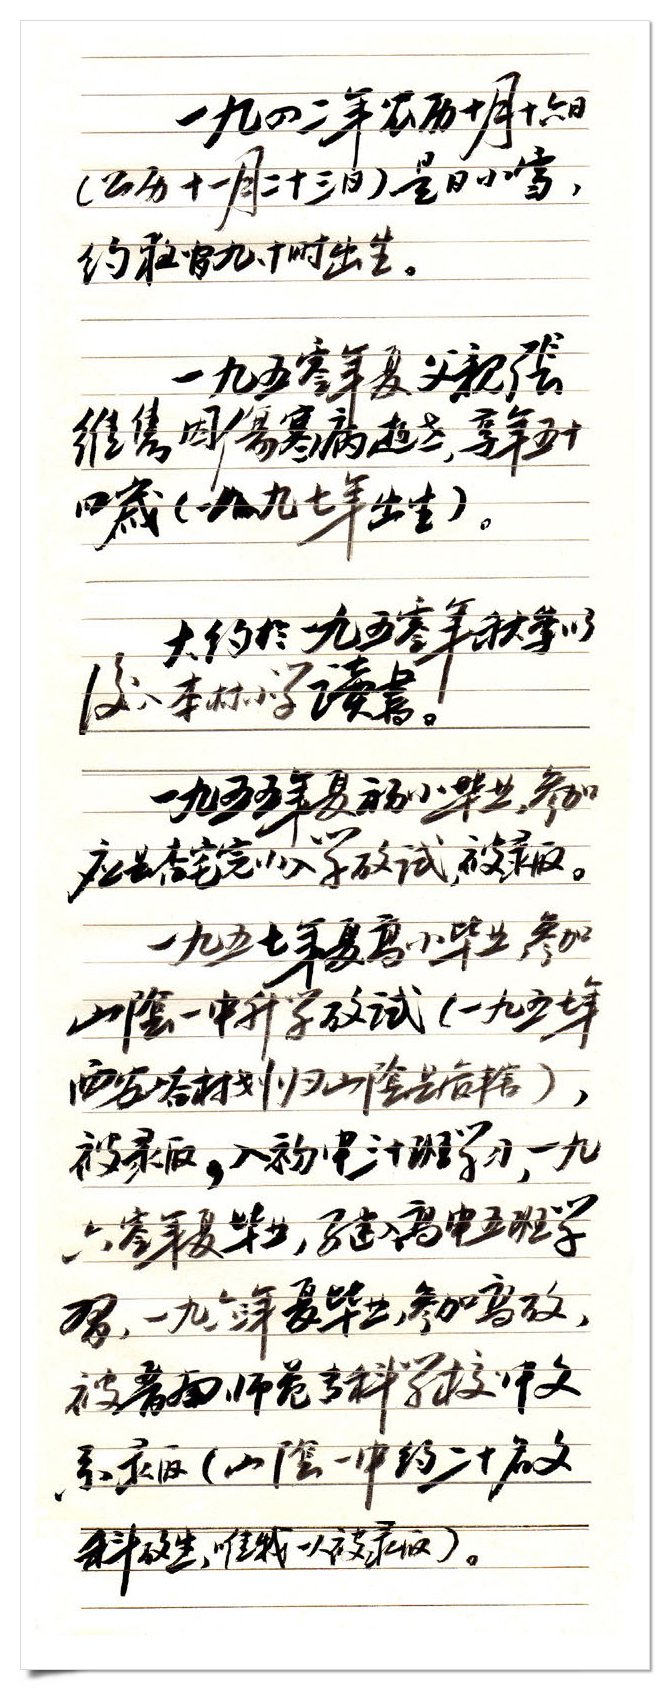 一九四二年农历十月十六日
(公历十一月二十三日)是日小雪,
约在 九、十时出生。
一九五零年夏父亲张
维隽因伤寒病逝去,享年五十
四岁(一八九七年出生)。
大约于一九五零年秋学以
后入本村小学读书。
一九五五年夏初小毕业,参加
应县杏宅完小入学考试,被录取。
一九五七年夏高小毕业参加
山阴一中升学考试(一九五七年
西 村划归山阴县后辖),
被录取,入初中三十班学习,一九
六零年夏毕业,又进入高中五班学
习,一九六三年夏毕业,参加高考,
被晋南师范专科学校中文
系录取(山阴一中约二十名文
科考生,唯我一人被录取)。